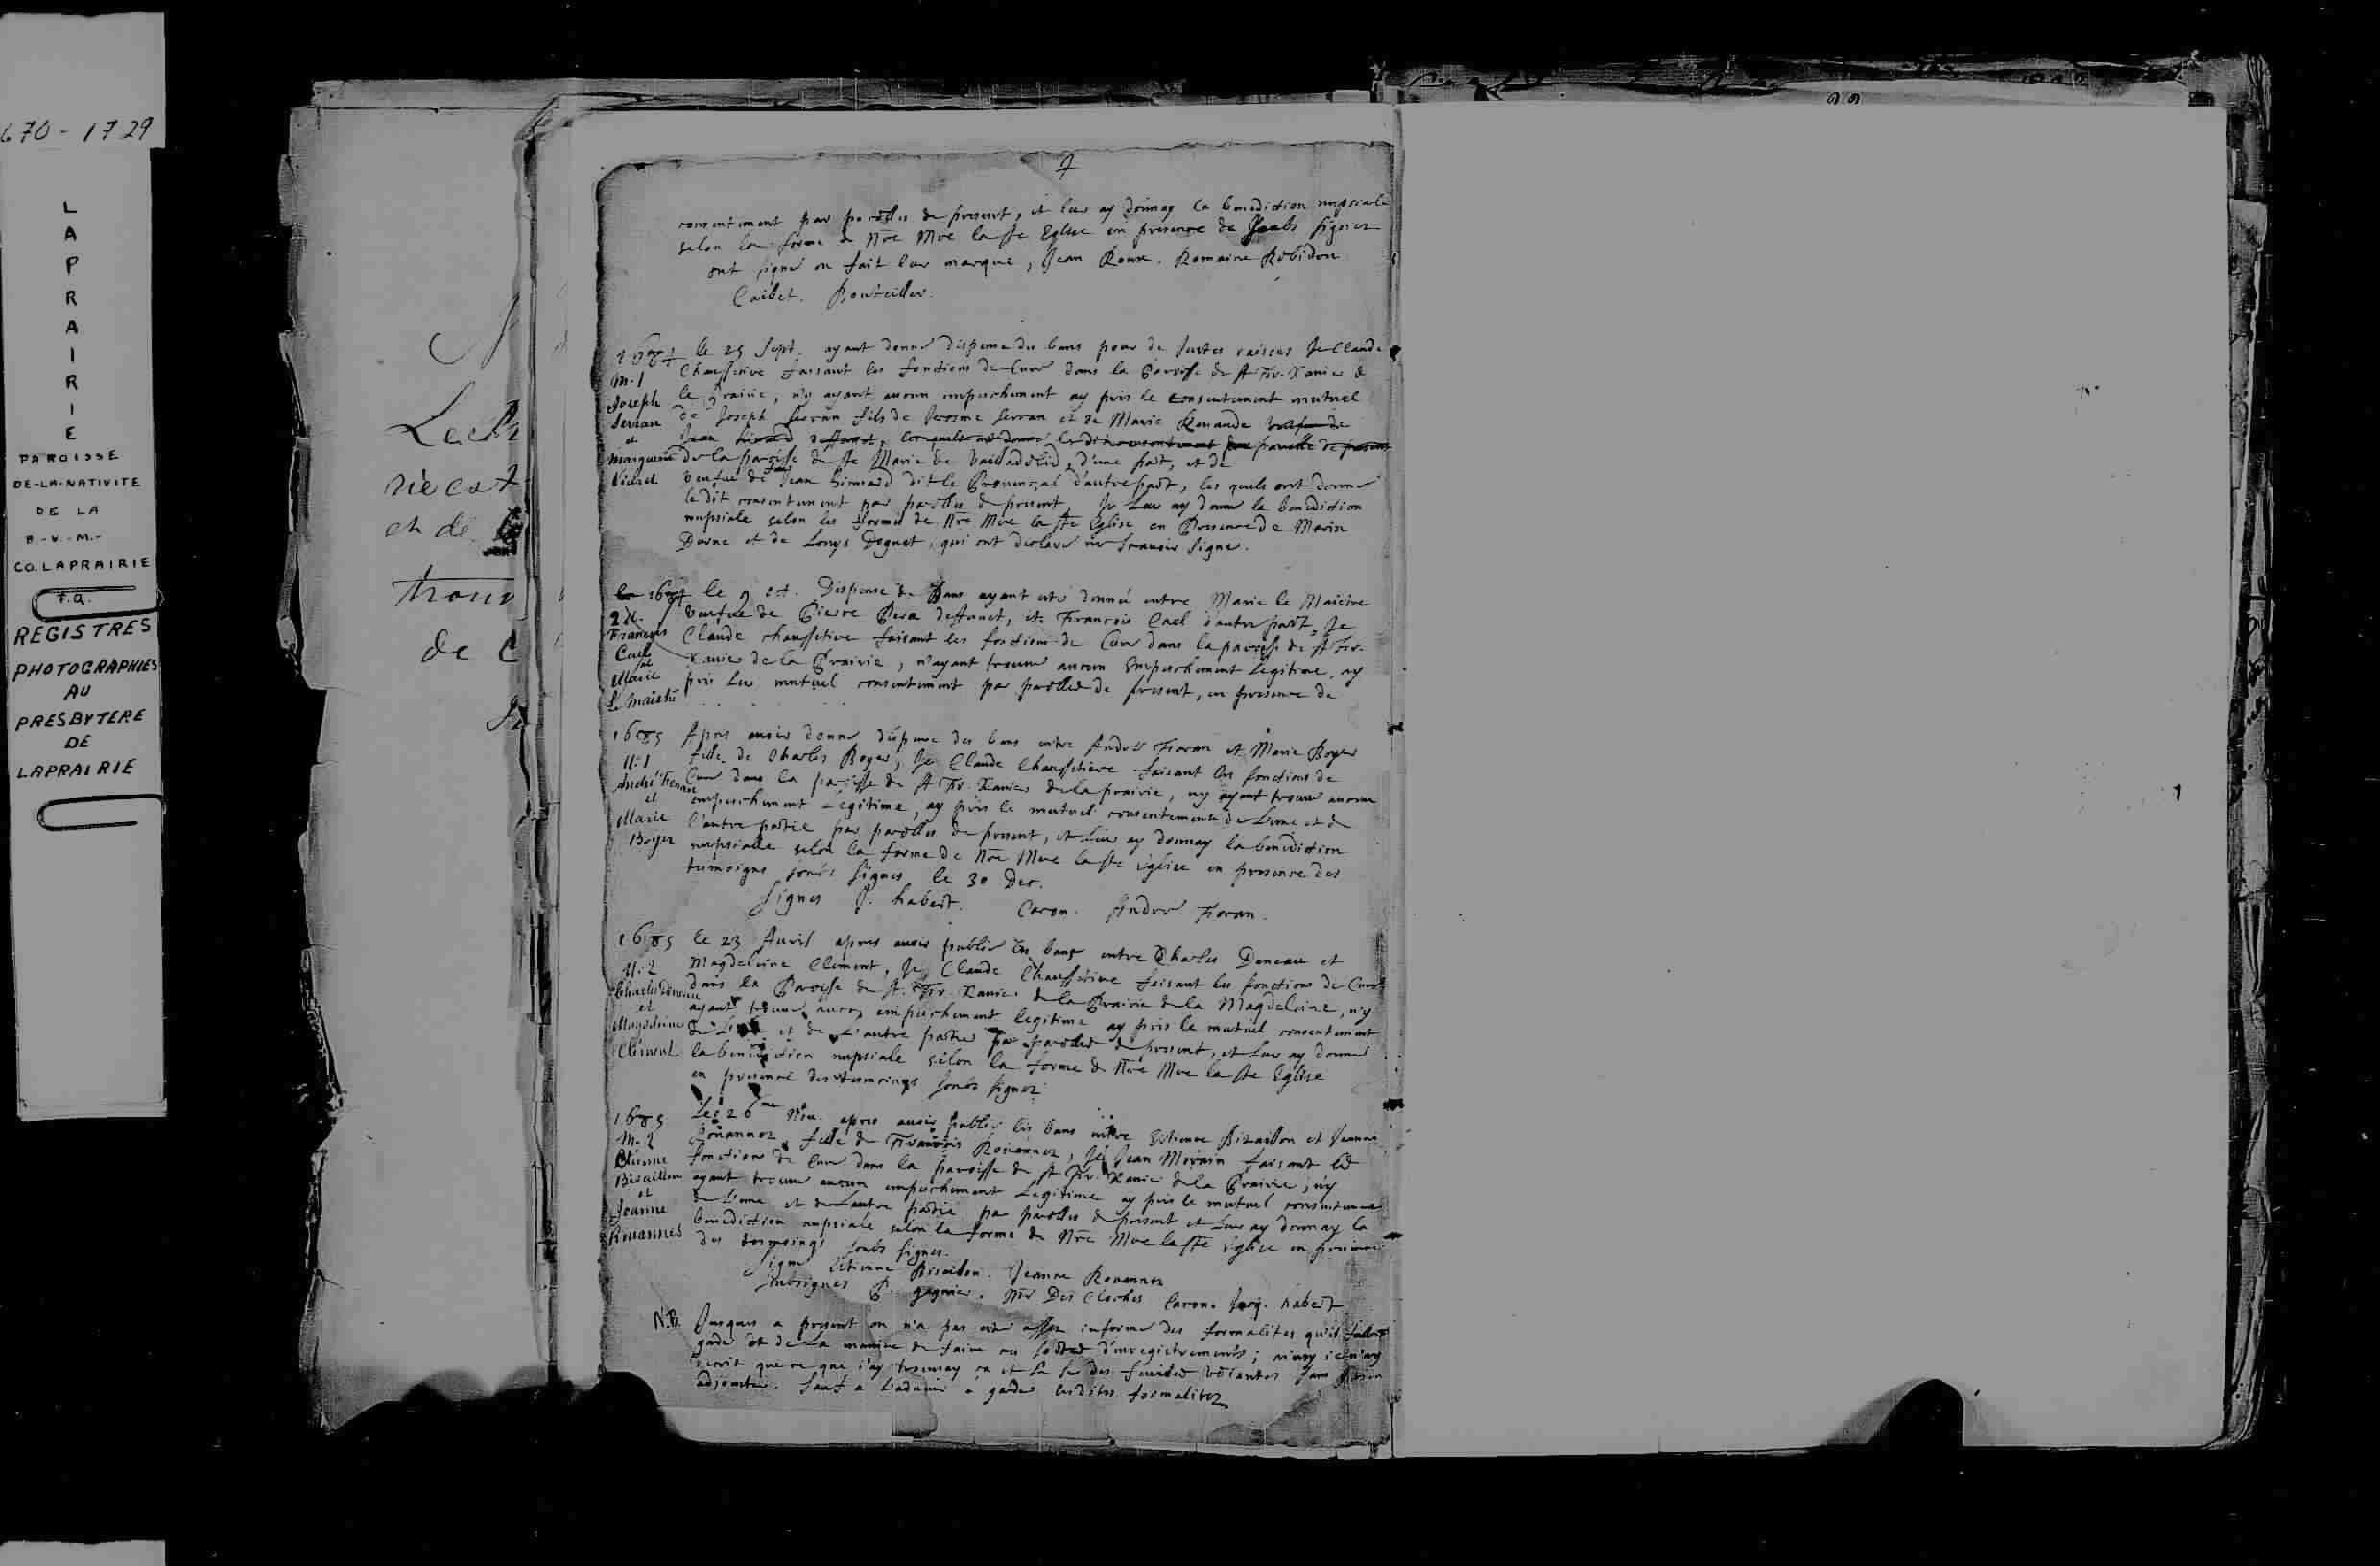 670-1729
LAPRAIRIE
PAROISSE
DE-LA-NATIVITE
DE LA
B.-V.-M.-
CO. LAPRAIRIE
P.Q.
REGISTRES
PHOTOGRAPHIES
AU
PRESBYTERE
DE
LAPRAIRIE
et de
de
7
consentement par parolles de present, et leur ay donnay la benediction nupsiale
selon la forme de Nre Mre la Ste Eglise en presence de Soubs signez
ont signé ou fait leur marque, Jean Roux. Romaine Robidou
Caibet. Bouteiller.
1684 le 25 Sept. ayant donné dispense des bans pour de Justes raisons Je Claude
M. 1 Chaussetire faisant les fonctions de Curé dans la Paroisse de St Fr. Xavier de
Joseph la Prairie, n'y ayant aucun empeschement ay pris le consentement mutuel
Serran de Joseph Serran fils de Jerosme Serran et de Marie Renaude
et
Marguerite de la paroisse de Ste Marie de Valladolid, d'une part, et de
Viard veufue de feu Jean Simard dit le Provençal d'autre part, les quels ont donné
le dit consentement par parolles de present, Je Leur ay donné la benediction
nupsiale selon la forme de Nre Mre la Ste Eglise en Presence de Marin
et de Louys qui ont declaré ne scavoir signer.
1684 le 9 oct. Dispense de Bans ayant esté donnée entre Marie le Maistre
2 M. veufue de Pierre Pera deffunct, et Francois Cael d'autre part, Je
Francois Claude chaussetire faisant les fonctions de Curé dans la paroisse de St Fr.
Cael et Xavier de la Prairie, n'ayant trouvé aucun Empeschement Legitime, ay
Marie pris Leur mutuel consentement par parolles de present, en presence de
Le Maistre
1685 Apres avoir donné dispense des bans entre André Foran et Marie Boyer
M. 1 fille de Charles Boyer, Je Claude Chaussetiere faisant les fonctions de
André Foran Curé dans la paroisse de St Fr. Xavier de la prairie, ny ayant trouvé aucun
et empeschement Legitime, ay pris le mutuel consentement de L'une et de
Marie l'autre partie par parolles de present, et Leur ay donnay la benediction
Boyer nupsialle selon la forme de Nre Mre la Ste Eglise en presence des
temoigns soubs signes le 30 Dec.
Signes P. habert. Caron. André Foran.
1685 le 23 Auril apres auoir publié les bans entre Charles Deneau et
M. 2 Magdeleine Clement, Je Claude Chaussetire faisant les fonctions de Curé
Charles Deneau dans la Paroisse de St. Fr. Xavier de la Prairie de la Magdeleine, n'y
et ayant trouvé aucun empeschement legitime ay pris le mutuel consentement
Magdeleine de L'une et de L'autre partie par parolles de present, et Leur ay donné
Clément la benediction nupsiale selon la forme de Nre Mre la Ste Eglise
en presence des tesmoings soubs signez
1685 Le 26me Nou. apres auoir publié les bans entre Estienne Bizaillon et Jeanne
M. 2 Rouannez fille de Francois Rouannez, Je Jean Morain faisant les
Etienne fonctions de Curé dans la paroisse de St Fr. Xavier de la Prairie, n'y
Bisaillon ayant trouvé aucun empeschement Legitime ay pris le mutuel consentement
et de L'une et de L'autre partie par parolles de present et Leur ay donnay la
Jeanne benediction nupsiale selon la forme de Nre Mre la Ste Eglise en presence
Rouannes des tesmoings soubs signes.
Signé Etienne Bisaillon. Jeanne Rouannez
Subsignes P. gagnier. Des Cloches Caron. habert
N.B. Jusques a present on n'a pas esté assez informé des formalites qu'il falloit
garder et de la maniere de faire ces sortes d'enregistremens; ainsy ie n'ay
écrit que ce que j'ay trouvay ça et la sur des feuilles volantes sans y rien
adjouter. Sauf a L'aduenir a garder lesdites formalitez
1